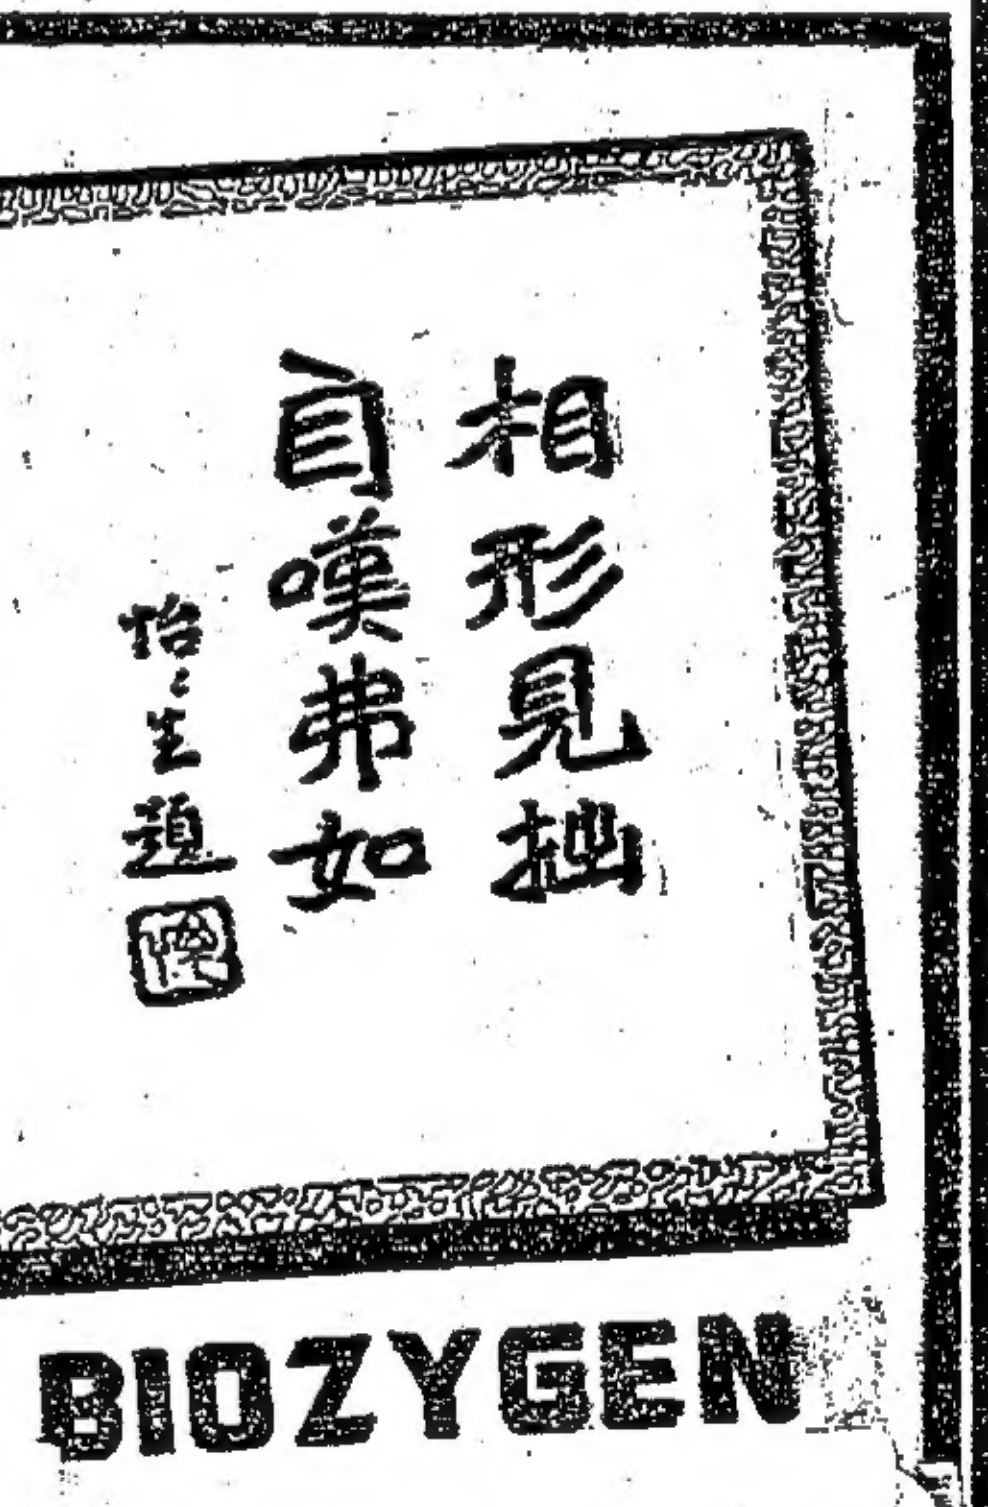 相形見拙
自嘆弗如
怡〻生題
BIOZYGEN